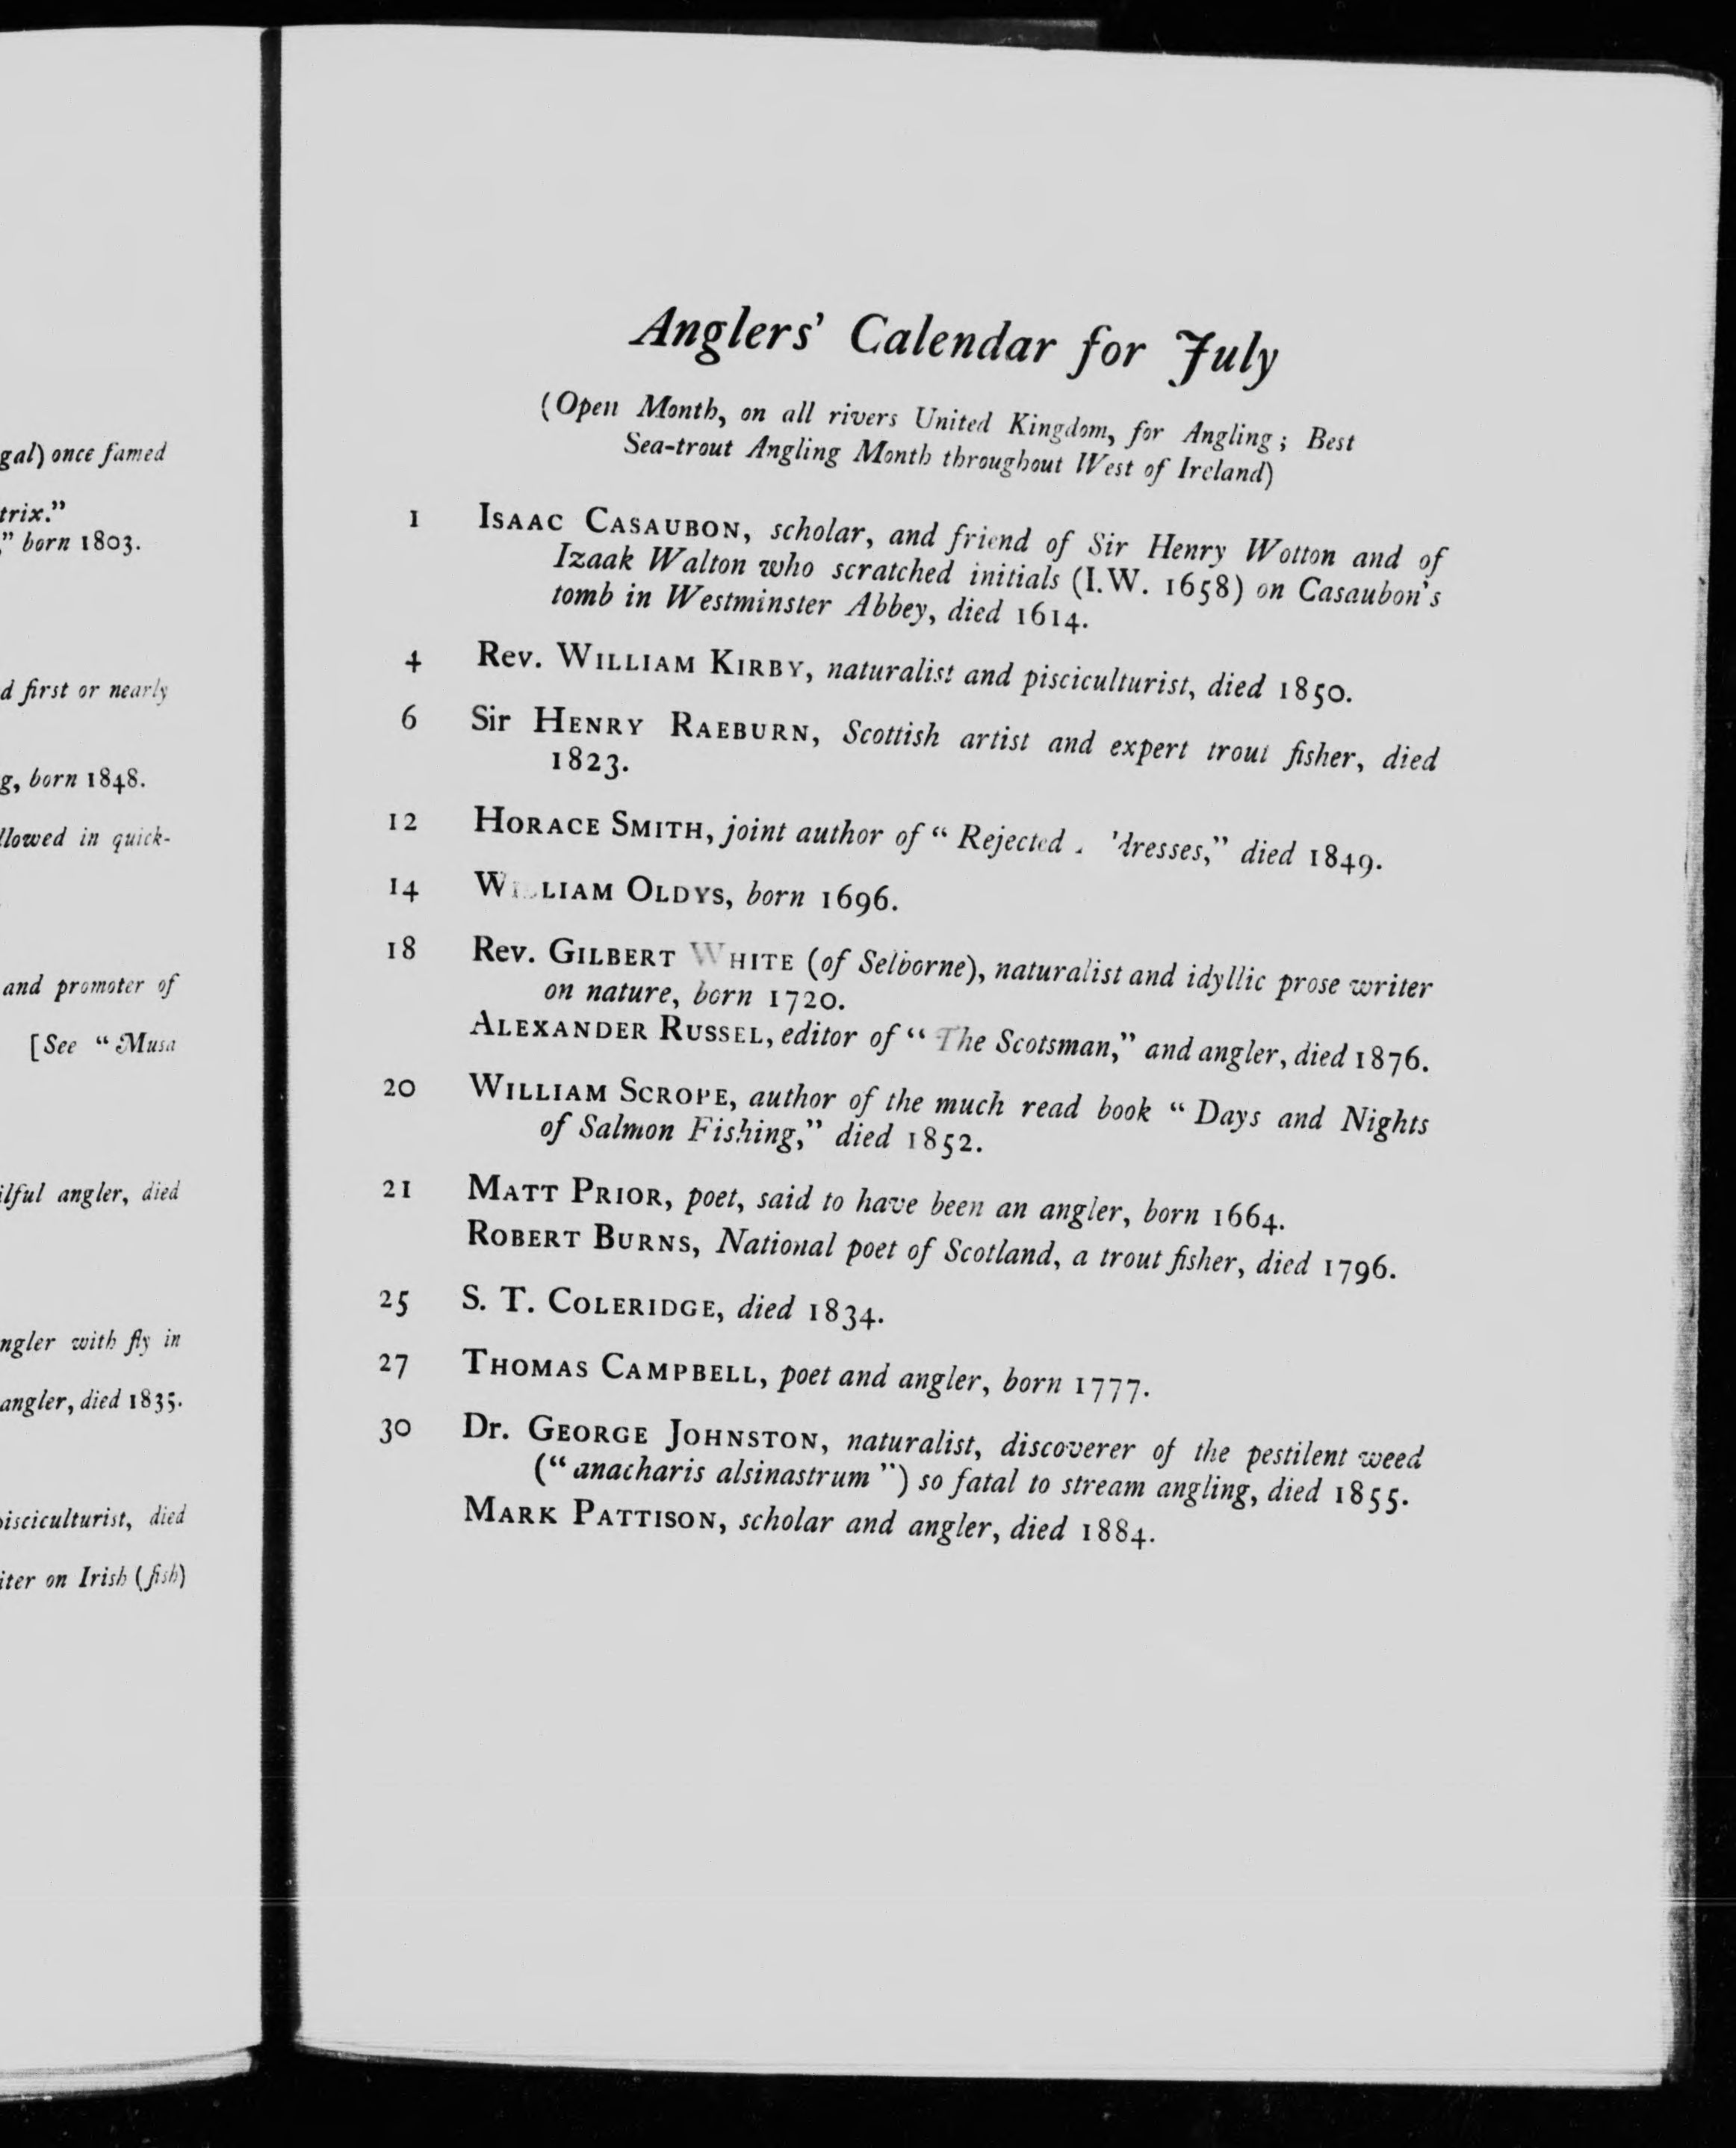 gal) once famed
trix."
," born 1803.
d first or nearly
g, born 1848.
llowed in quick-
and promoter of
[See "Musa
ilful angler, died
ngler with fly in
angler, died 1835.
pisciculturist, died
iter on Irish (fish)
Anglers' Calendar for July
(Open Month, on all rivers United Kingdom, for Angling; Best
Sea-trout Angling Month throughout West of Ireland)
1 ISAAC CASAUBON, scholar, and friend of Sir Henry Wotton and of
Izaak Walton who scratched initials (I.W. 1658) on Casaubon's
tomb in Westminster Abbey, died 1614.
4 Rev. WILLIAM KIRBY, naturalist and pisciculturist, died 1850.
6 Sir HENRY RAEBURN, Scottish artist and expert trout fisher, died
1823.
12 HORACE SMITH, joint author of "Rejected dresses," died 1849.
14 WILLIAM OLDYS, born 1696.
18 Rev. GILBERT WHITE (of Selborne), naturalist and idyllic prose writer
on nature, born 1720.
ALEXANDER RUSSEL, editor of "The Scotsman," and angler, died 1876.
20 WILLIAM SCROPE, author of the much read book "Days and Nights
of Salmon Fishing," died 1852.
21 MATT PRIOR, poet, said to have been an angler, born 1664.
ROBERT BURNS, National poet of Scotland, a trout fisher, died 1796.
25 S. T. COLERIDGE, died 1834.
27 THOMAS CAMPBELL, poet and angler, born 1777.
30 Dr. GEORGE JOHNSTON, naturalist, discoverer of the pestilent weed
("anacharis alsinastrum") so fatal to stream angling, died 1855.
MARK PATTISON, scholar and angler, died 1884.